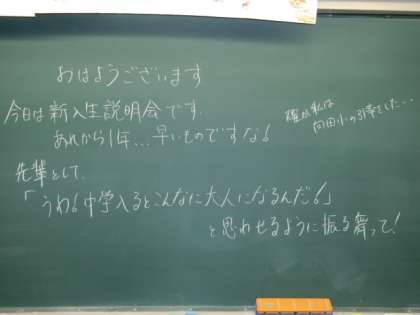 おはようございます
今日は新入生説明会です.
あれから1年...早いものですなぁ
確か私は
向田小の引率をした...
先輩として.
「うわぁ中学入るとこんなに大人になるんだぁ」
と思わせるように振る舞って!